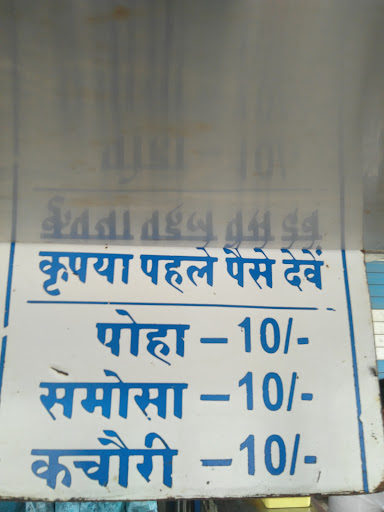 कृपया पहले पैसे देवें
पोहा – 10/-
समोसा – 10/-
कचौरी – 10/-